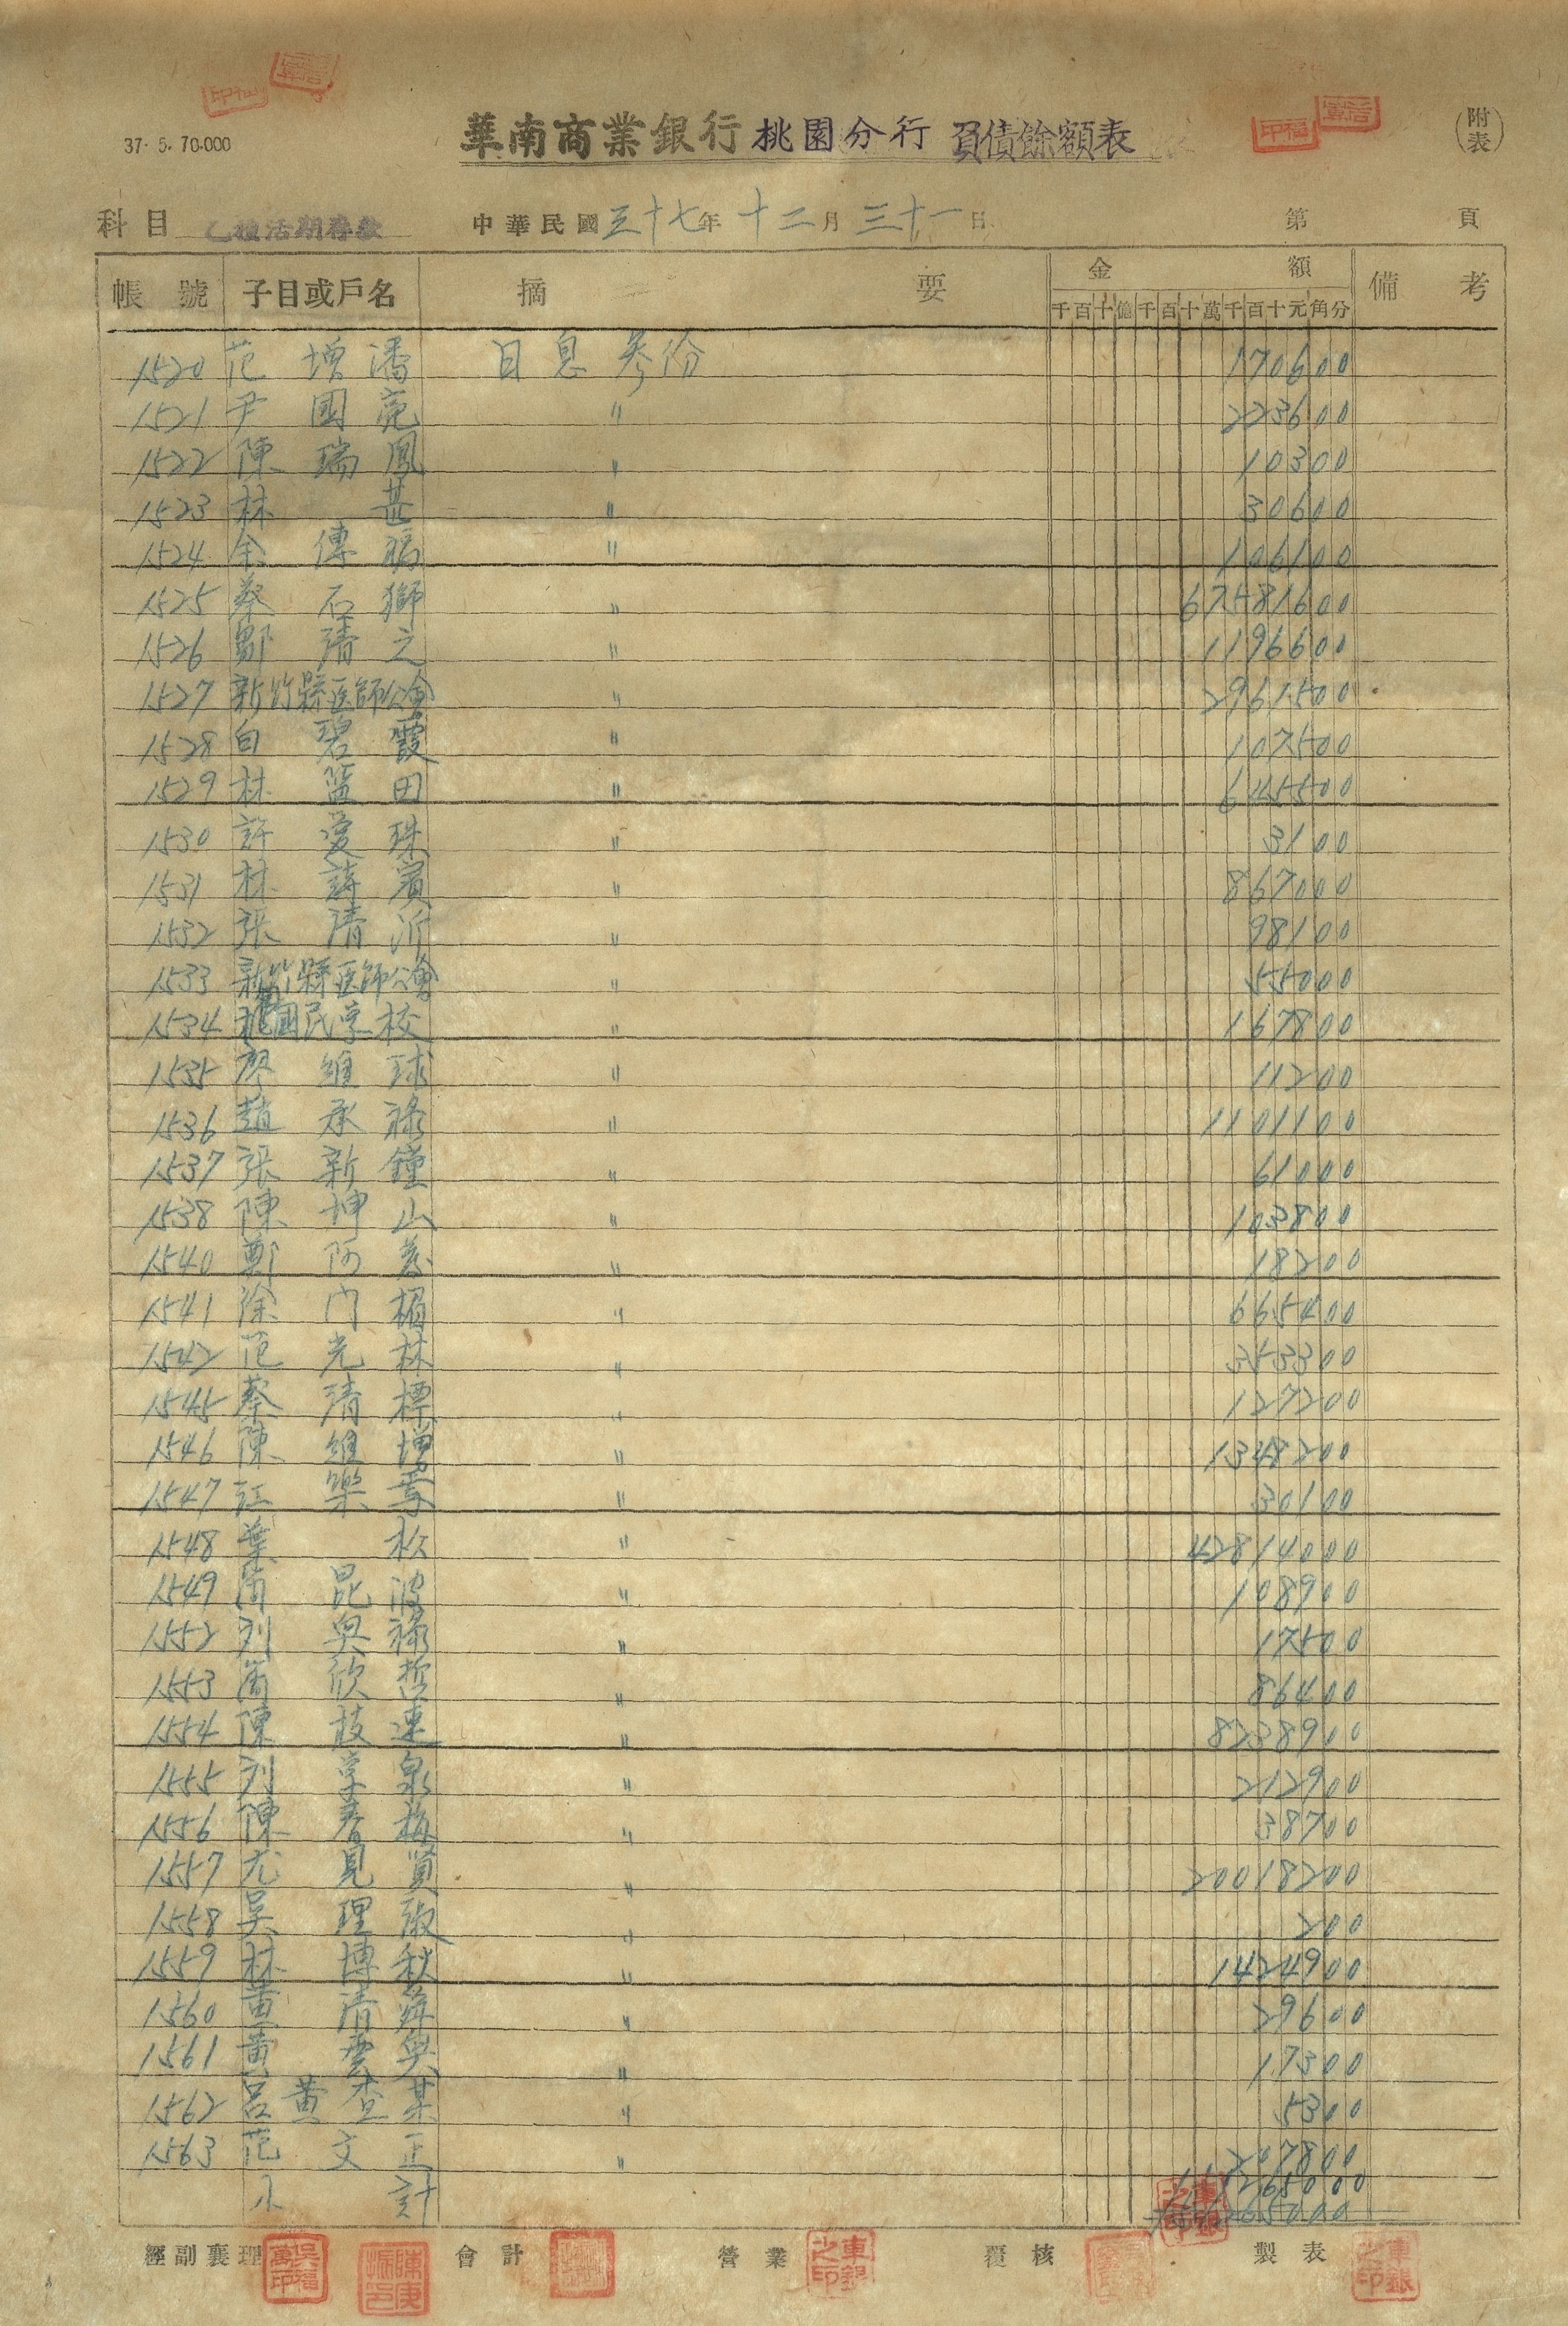 37. 5. 70.000
華南商業銀行桃園分行 負債餘額表
(附表)
科目 乙種活期存款 中華民國三十七年十二月三十一日 第 頁
帳號 子目或戶名 摘要 金額 備考
千百十億千百十萬千百十元角分
1520 范增潘 日息參份 170600
1521 尹國亮 〃 223600
1522 陳瑞鳳 〃 10300
1523 林甚 〃 30600
1524 余傳福 〃 106100
1525 蔡石獅 〃 67581600
1526 鄒清之 〃 1196600
1527 新竹縣医師公會 〃 2961500
1528 白碧霞 〃 107500
1529 林籃田 〃 645500
1530 許愛珠 〃 3100
1531 林詩賓 〃 867000
1532 張清沂 〃 98100
1533 新竹縣医師公會 〃 55000
1534 國民学校 〃 167800
1535 廖維球 〃 11200
1536 趙承祿 〃 1101100
1537 張新鐘 〃 61000
1538 陳坤山 〃 103800
1540 鄭阿 〃 18200
1541 徐門楣 〃 665400
1542 范光林 〃 353300
1545 蔡清標 〃 127200
1546 陳維增 〃 1348200
1547 江樂 〃 30100
1548 葉松 〃 42814000
1549 昆波 〃 108900
1552 列興祿 〃 17500
1553 欣哲 〃 86400
1554 陳枝連 〃 8238900
1555 列草泉 〃 212900
1556 陳春梅 〃 38700
1557 尤見賢 〃 20018200
1558 吳理淑 〃 200
1559 林博秋 〃 1424900
1560 黄清 〃 29600
1561 黄雲興 〃 17300
1562 呂黄查某 〃 5300
1563 范文正 〃 207800
小計
經副襄理 會計 營業 覆核 製表